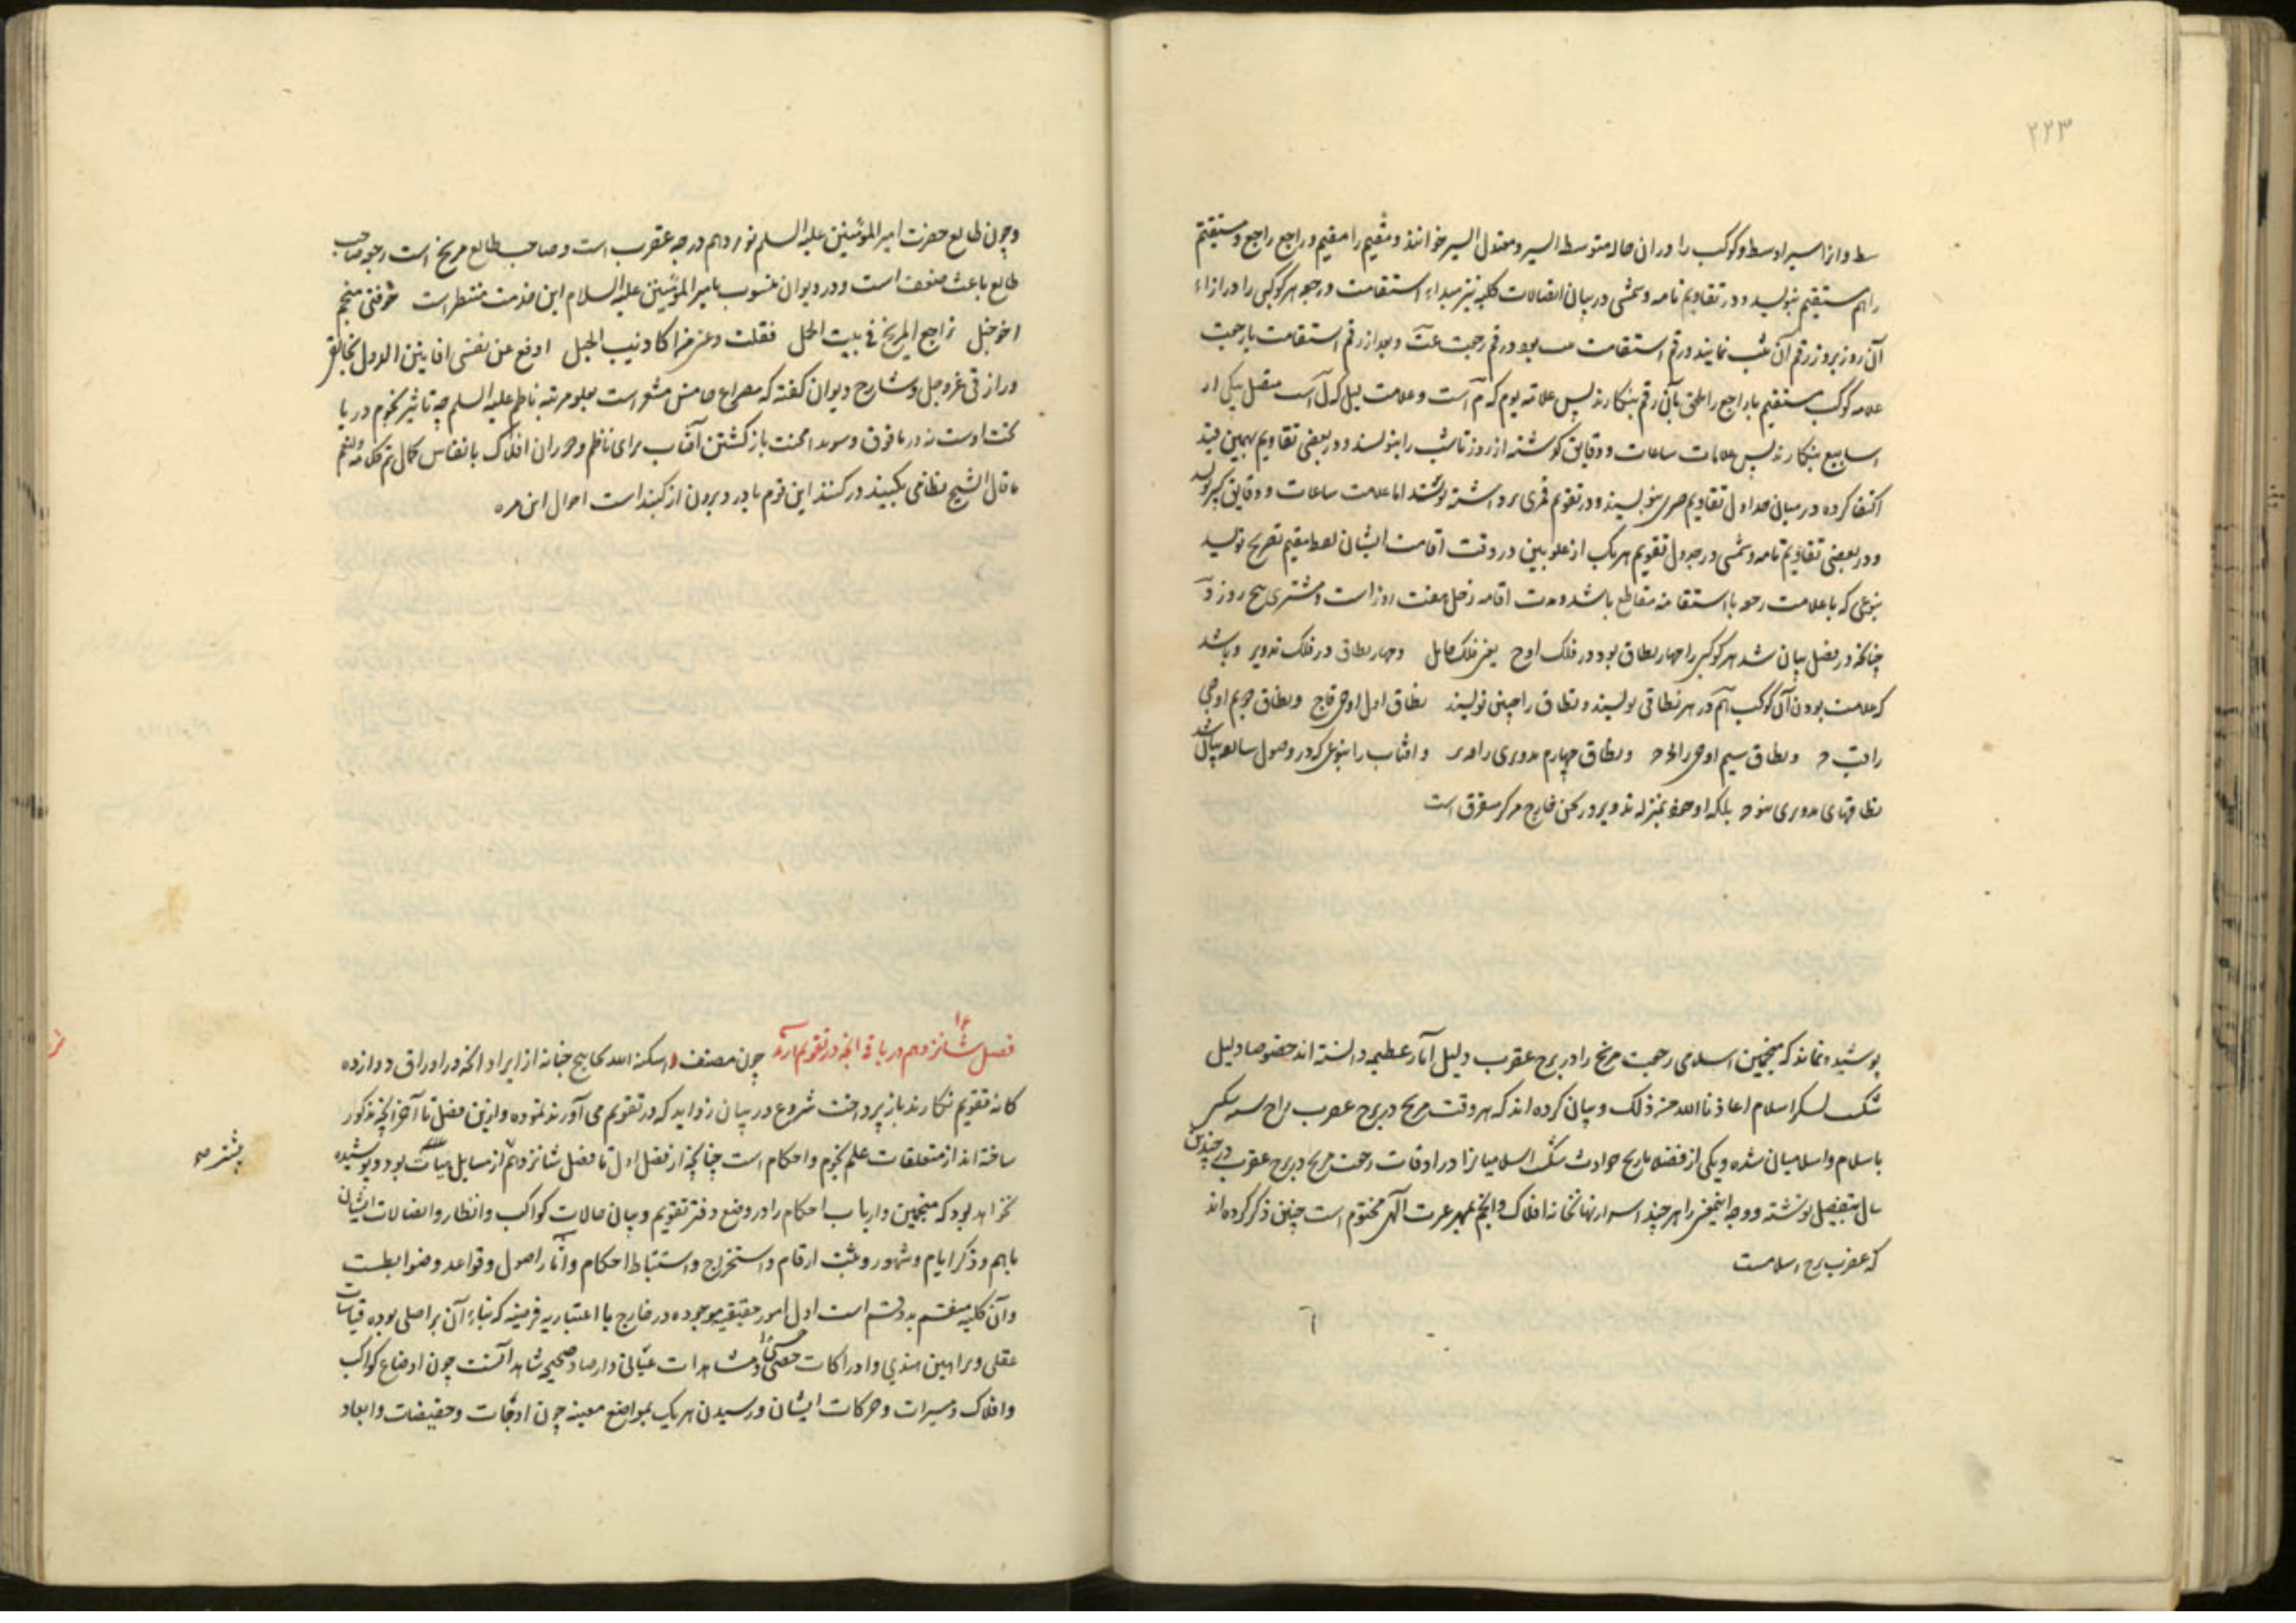 ۲۲۳
سط و از اسیر اوسط و کوکب را در ان حاله متوسط السیر و معتدل السیر خوانند و مقیم را مقیم و راجع راجع و مستقیم
را هم مستقیم بنویسد و در تقاویم تامه و شمسی در بیان اتصالات کلیه نیز مبداء استقامت و رجوع هر کوکبی را در ازاء
آن روز بروز رقم آن ثبت نمایند و رقم استقامت بود و رقم رجعت عت و بعد از رقم استقامت یا رجعت
علامه کوکب مستقیم یا راجع را ملحق بآن رقم بنکارند پس علامه یوم که م است و علامت لیل که ل است متصل بیکی از
اسابیع بنکارند پس علامات ساعات و دقایق کوشته از روز تا شب را بنویسند و در بعضی تقاویم بهمین قید
اکتفا کرده در میانی جداول تقاویم بنویسند و در تقویم قمری اما علامت ساعات و دقایق
و در بعضی تقاویم تامه و شمسی در جدول تقویم هر یک از علویین در وقت اقامت ایشان لفظ مقیم تصریح نویسد
بنوعی که با علامت رجوع یا استقامه متقاطع باشد و مدت اقامه زحل هفت روز است و مشتری پنج روز و
چنانکه در فصل بیان شد هر کوکبی را چهار نطاق بود در فلک اوج یعنی فلک حامل و چهار نطاق در فلک تدویر و باشد
که علامت بودن آن کوکب هم در هر نطاقی نویسند و نطاق را چنین نویسند نطاق اول اوجی و نطاق دویم اوجی
را و نطاق سیم اوجی را و نطاق چهارم تدویری را و افتاب را بنوعی که در فصول بیان شد
نطاقهای تدویری نبود بلکه او بمنزله تدویر در خارج مرکز است
پوشیده نماند که منجمین اسلامی رجعت مریخ را در برج عقرب دلیل آثار عظیمه دانسته اند خصوصا دلیل
شکست لشکر اسلام اعاذنا الله من ذلک و بیان کرده اند که هر وقت مریخ در برج عقرب راجع
باسلام و اسلامیان شده و یکی از فضلا تاریخ حوادث شکست اسلامیانرا در اوقات رجعت مریخ در برج عقرب در چندین
سال بتفصیل نوشته و وجه اینمعنی را هر چند اسرار نهانخانه افلاک و انجم بمهر عزت الهی مختوم است چنین ذکر کرده اند
که عقرب برج اسلامست
و چون طالع حضرت امیر المومنین علیه السلم نوزدهم درجه عقرب است و صاحب طالع مریخ است رجوع صاحب
طالع باعث ضعف است و در دیوان منسوب بامیر المومنین علیه السلام این خوفنی منجم
اخو خبل تراجع المریخ فی بیت الحمل فقلت دعنی من اکاذیب الحیل ادفع عن نفسی افانین الدول بخالقی
و رازقی عز و جل و شارح دیوان کفته که مصراع خامس مشعر است بعلو مرتبه ناظم علیه السلم چه تاثیر نجوم در ما
تحت اوست نه در ما فوق و باز کشتن آفتاب برای ناظم و دوران افلاک بانفاس کمال
ما قال الشیخ نظامی بکبند در کنند این قوم ماد و بیرون از کبند است احوال این مره
فصل شانزدهم در باقی انچه در تقویم ارند چون مصنف اسکنه الله بحابیح جنانه از ایراد انچه در اوراق دوازده
کانه تقویم نکارند باز پرداخت شروع در بیان زواید که در تقویم می آورند نموده و ازین فصل تا آخر انچه مذکور
ساخته اند از متعلقات علم نجوم و احکام است چنانچه از فصل اول تا فصل شانزدهم از مسایل هیات بود و پوشیده
پیشتر صح
نخواهد بود که منجمین و ارباب احکام را در وضع دفتر تقویم و بیان حالات کواکب و انظار و اتصالات ایشان
باهم و ذکر ایام و شهور و ثبت ارقام و استخراج و استنباط احکام و آثار اصول و قواعد و ضوابطست
و آن کلیه منقسم بدو قسم است اول امور حقیقیه موجوده در خارج یا اعتباریه فرضیه که بناء آن بر اصلی بوده قیاسات
عقلی و براهین هندسی و ادراکات حسی و مشاهدات عیانی و ارصاد صحیحه شاهد آنست چون اوضاع کواکب
و افلاک و سیرات و حرکات ایشان و رسیدن هر یک بمواضع معینه چون اوجات و حضیضات و ابعاد